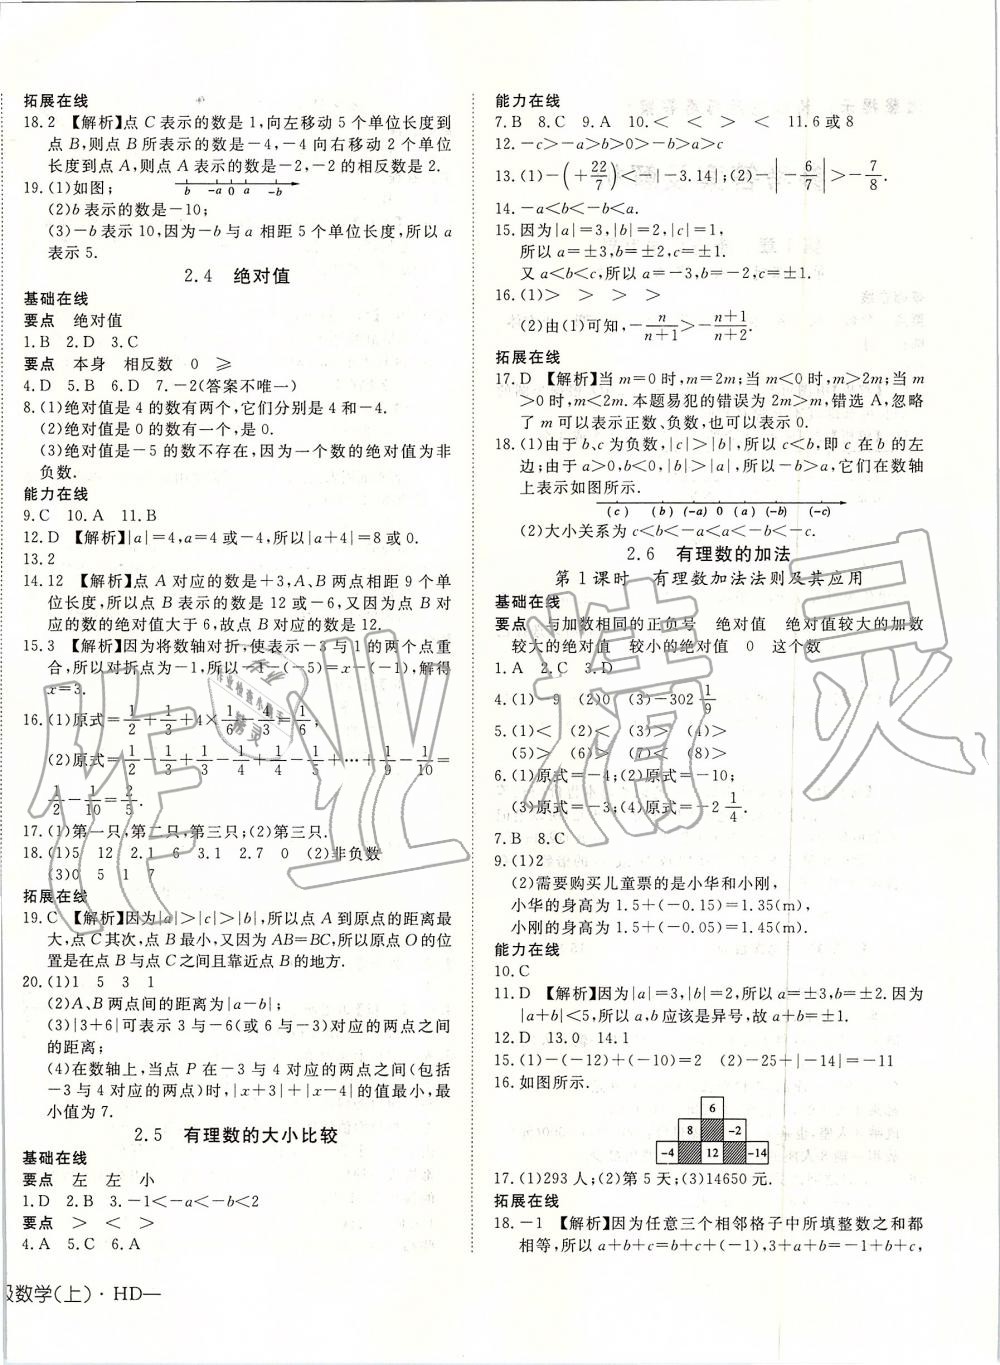 拓展在线
18.2 【解析】点 C 表示的数是 1,向左移动 5 个单位长度到
点 B,则点 B 所表示的数是-4,-4 向右移动 2 个单位
长度到点 A,则点 A 表示的数是-2,-2 的相反数是 2.
19.(1)如图; b -a 0 a -b
(2)b 表示的数是-10;
(3)-b 表示 10,因为-b 与 a 相距 5 个单位长度,所以 a
表示 5.
2.4 绝对值
基础在线
要点 绝对值
1.B 2.D 3.C
要点 本身 相反数 0 ≥
4.D 5.B 6.D 7.-2(答案不唯一)
8.(1)绝对值是 4 的数有两个,它们分别是 4 和-4.
(2)绝对值是 0 的数有一个,是 0.
(3)绝对值是-5 的数不存在,因为一个数的绝对值为非
负数.
能力在线
9.C 10.A 11.B
12.D 【解析】|a|=4,a=4 或-4,所以|a+4|=8 或 0.
13.2
14.12 【解析】点 A 对应的数是+3,A、B 两点相距 9 个单
位长度,所以点 B 表示的数是 12 或-6,又因为点 B 对
应的数的绝对值大于 6,故点 B 对应的数是 12.
15.3 【解析】因为将数轴对折,使表示-1 与-1 的两个点重
合,所以对折点为-1,所以-1-(-5)=x-(-1),解得
x=3.
16.(1)原式=1/2+1/3+4×1/6-4/3=1/6;
(2)原式=1/2-1/3+1/3-1/4+1/4-1/5+…+1/9-1/10=
1/2-1/10=2/5.
17.(1)第一只,第二只,第三只;(2)第三只.
18.(1)5 12 2.1 6 3.1 2.7 0 (2)非负数
(3)0 5 1 7
拓展在线
19.C 【解析】因为|a|>|c|>|b|,所以点 A 到原点的距离最
大,点 C 其次,点 B 最小,又因为 AB=BC,所以原点 O 的位
置是在点 B 与点 C 之间且靠近点 B 的地方.
20.(1)1 5 3 1
(2)A、B 两点间的距离为|a-b|;
(3)|3+6|可表示 3 与-6(或 6 与-3)对应的两点之间
的距离;
(4)在数轴上,当点 P 在-3 与 4 对应的两点之间(包括
-3 与 4 对应的两点)时,|x+3|+|x-4|的值最小,最
小值为 7.
2.5 有理数的大小比较
基础在线
要点 左 左 小
1.D 2.B 3.-1<-a<-b<2
要点 > < >
4.A 5.C 6.A
级数学(上)·HD—
能力在线
7.B 8.C 9.A 10.< < > < 11.6 或 8
12.-c>-a>b>0>-b>a>c
13.(1)-(+22/7)<-|-3.14|;(2)-|-6/7|>-7/8.
14.-a<b<-b<a.
15.因为|a|=3,|b|=2,|c|=1,
所以 a=±3,b=±2,c=±1.
又 a<b<c,所以 a=-3,b=-2,c=±1.
16.(1)> > > >
(2)由(1)可知,-n/(n+1)>-(n+1)/(n+2).
拓展在线
17.D 【解析】当 m=0 时,m=2m;当 m<0 时,m>2m;当 m
>0 时,m<2m.本题易犯的错误为 2m>m,错选 A,忽略
了 m 可以表示正数、负数,也可以表示 0.
18.(1)由于 b、c 为负数,|c|>|b|,所以 c<b,即 c 在 b 的左
边;由于 a>0,b<0,|b|>|a|,所以-b>a,它们在数轴
上表示如图所示.
(c) (b) (-a) 0 (a) (-b) (-c)
(2)大小关系为 c<b<-a<a<-b<-c.
2.6 有理数的加法
第 1 课时 有理数加法法则及其应用
基础在线
要点 与加数相同的正负号 绝对值 绝对值较大的加数
较大的绝对值 较小的绝对值 0 这个数
1.A 2.C 3.D
4.(1)-9 (2)0 (3)-302 1/9
5.(1)< (2)< (3)> (4)>
(5)> (6)> (7)< (8)>
6.(1)原式=-4;(2)原式=-10;
(3)原式=-3;(4)原式=-2 1/4.
7.B 8.C
9.(1)2
(2)需要购买儿童票的是小华和小刚,
小华的身高为 1.5+(-0.15)=1.35(m),
小刚的身高为 1.5+(-0.05)=1.45(m).
能力在线
10.C
11.D 【解析】因为|a|=3,|b|=2,所以 a=±3,b=±2.因为
|a+b|<5,所以 a,b 应该是异号,故 a+b=±1.
12.D 13.0 14.1
15.(1)-(-12)+(-10)=2 (2)-25+|-14|=-11
16.如图所示.
6
8 -2
-4 12 -14
17.(1)293 人;(2)第 5 天;(3)14650 元.
拓展在线
18.-1 【解析】因为任意三个相邻格子中所填整数之和都
相等,所以 a+b+c=b+c+(-1),3+a+b=-1+b+c,
作业精灵